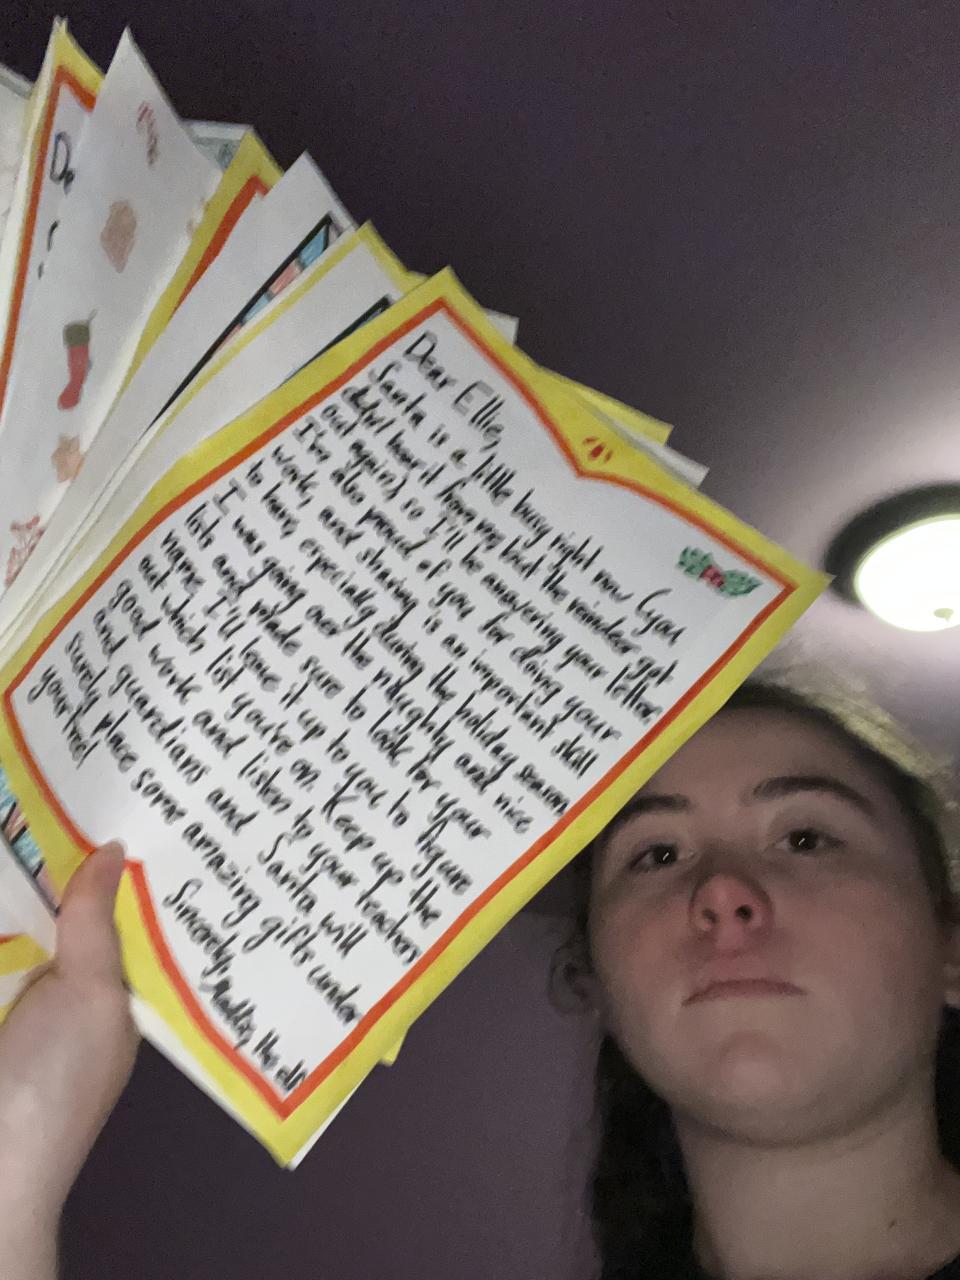 Dear Ellie,
Santa is a little busy right now (you
didn't hear it from me, but the reindeer got
out again) so I'll be answering your letter.
I'm also proud of you for doing your
work, and sharing is an important skill
to have, especially during the holiday season
I was going over the naughty and nice
lists and made sure to look for your
name. I'll leave it up to you to figure
out which list you're on. Keep up the
good work and listen to your teachers
and guardians and Santa will
surely place some amazing gifts under
your tree!
Sincerely, the elf
De